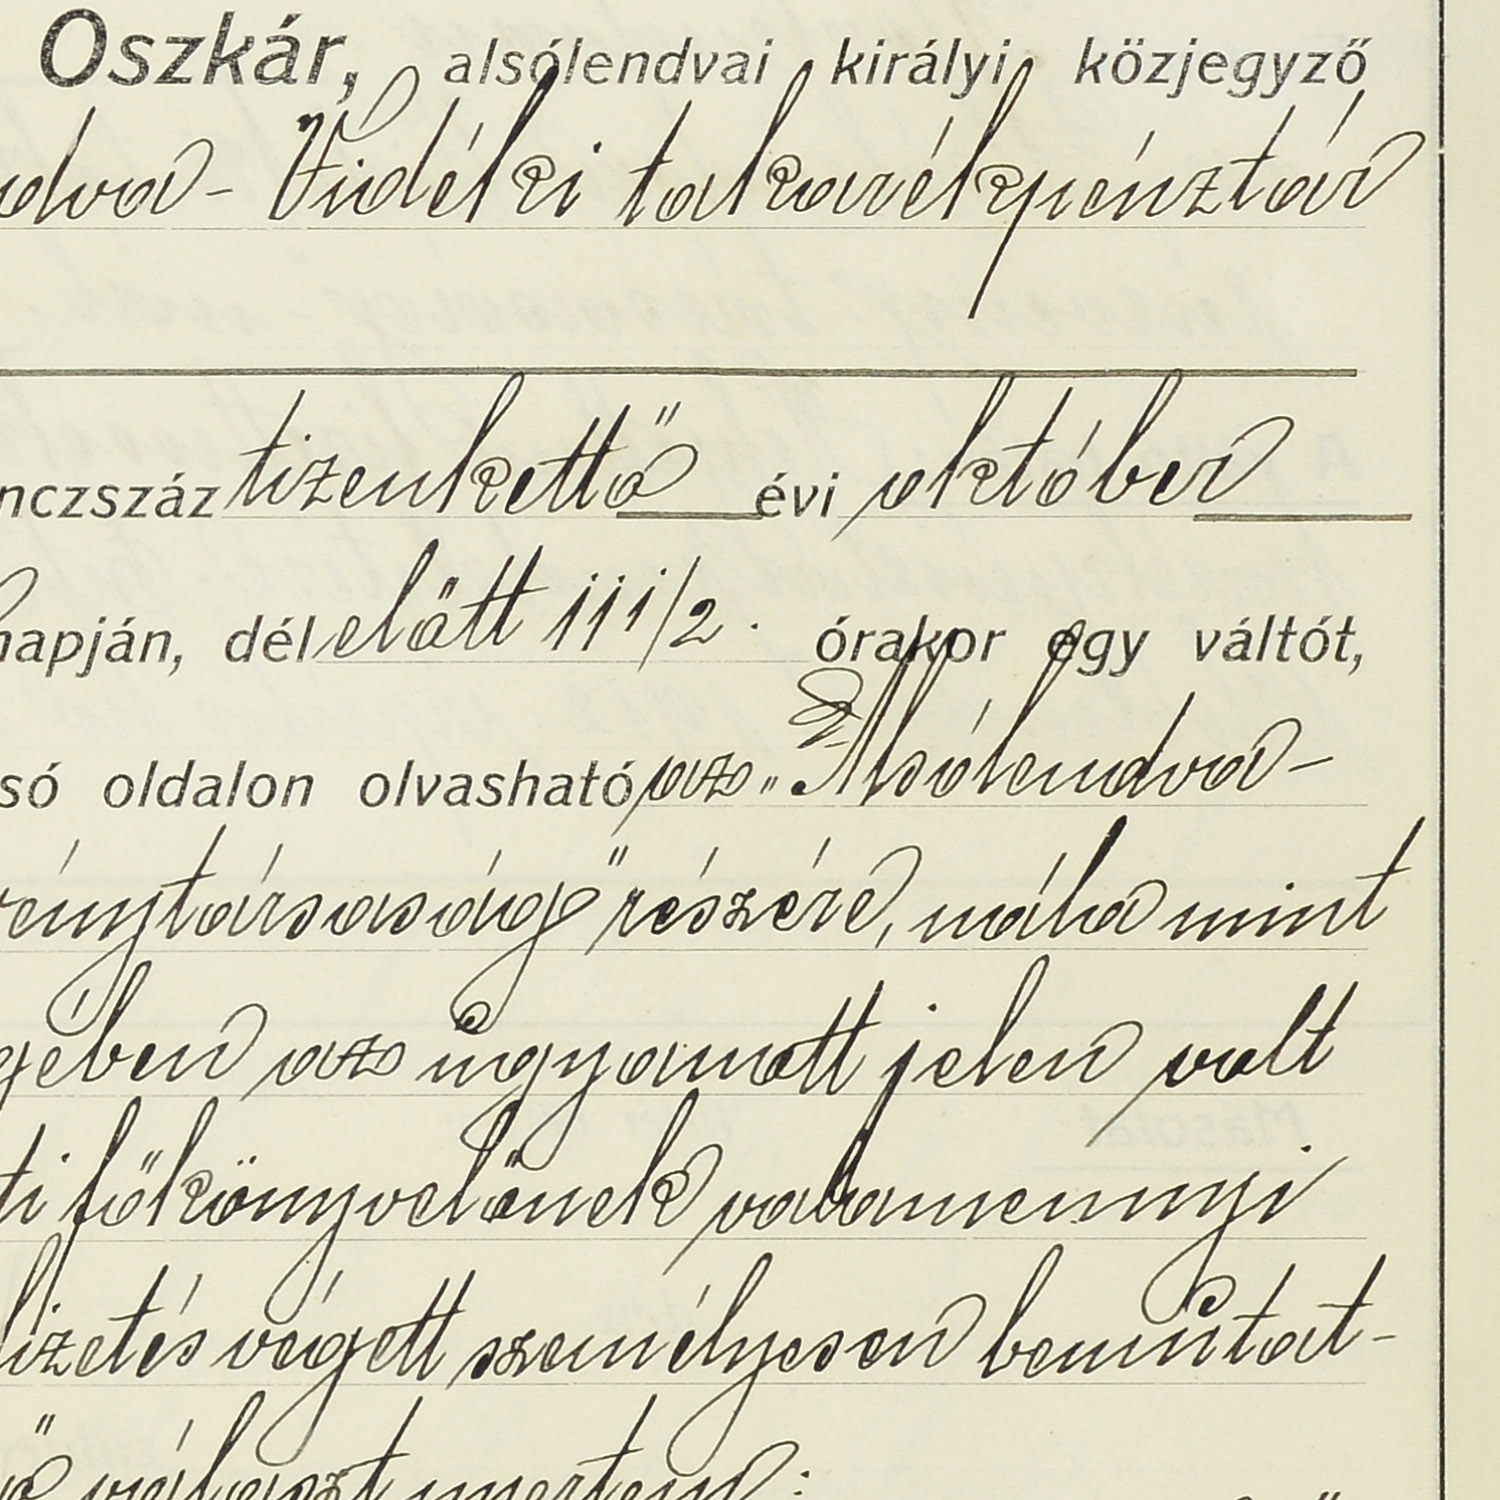 Oszkár, alsólendvai királyi közjegyző
dva- Vidéki takarékpénztár
nczszáz tizenkettő évi október
napján, délelőtt 11 1/2. órakor egy váltót,
só oldalon olvasható, az "Alsólendva-
rénytársaság" részére, nála mint
gében az ugyanott jelen volt
ti főkönyvelőnek valamennyi
fizetés végett személyesen bemutat-
ő választ nyertem: